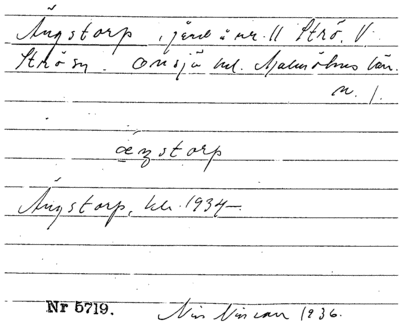 Ängstorp, jord å nr. 11 Strö. V
Strö sn. Onsjö hd. Malmöhus län.
n. 1.
æŋstorp
Ängstorp, kr. 1934–
Nr 5719. Nils Nilsson 1936.